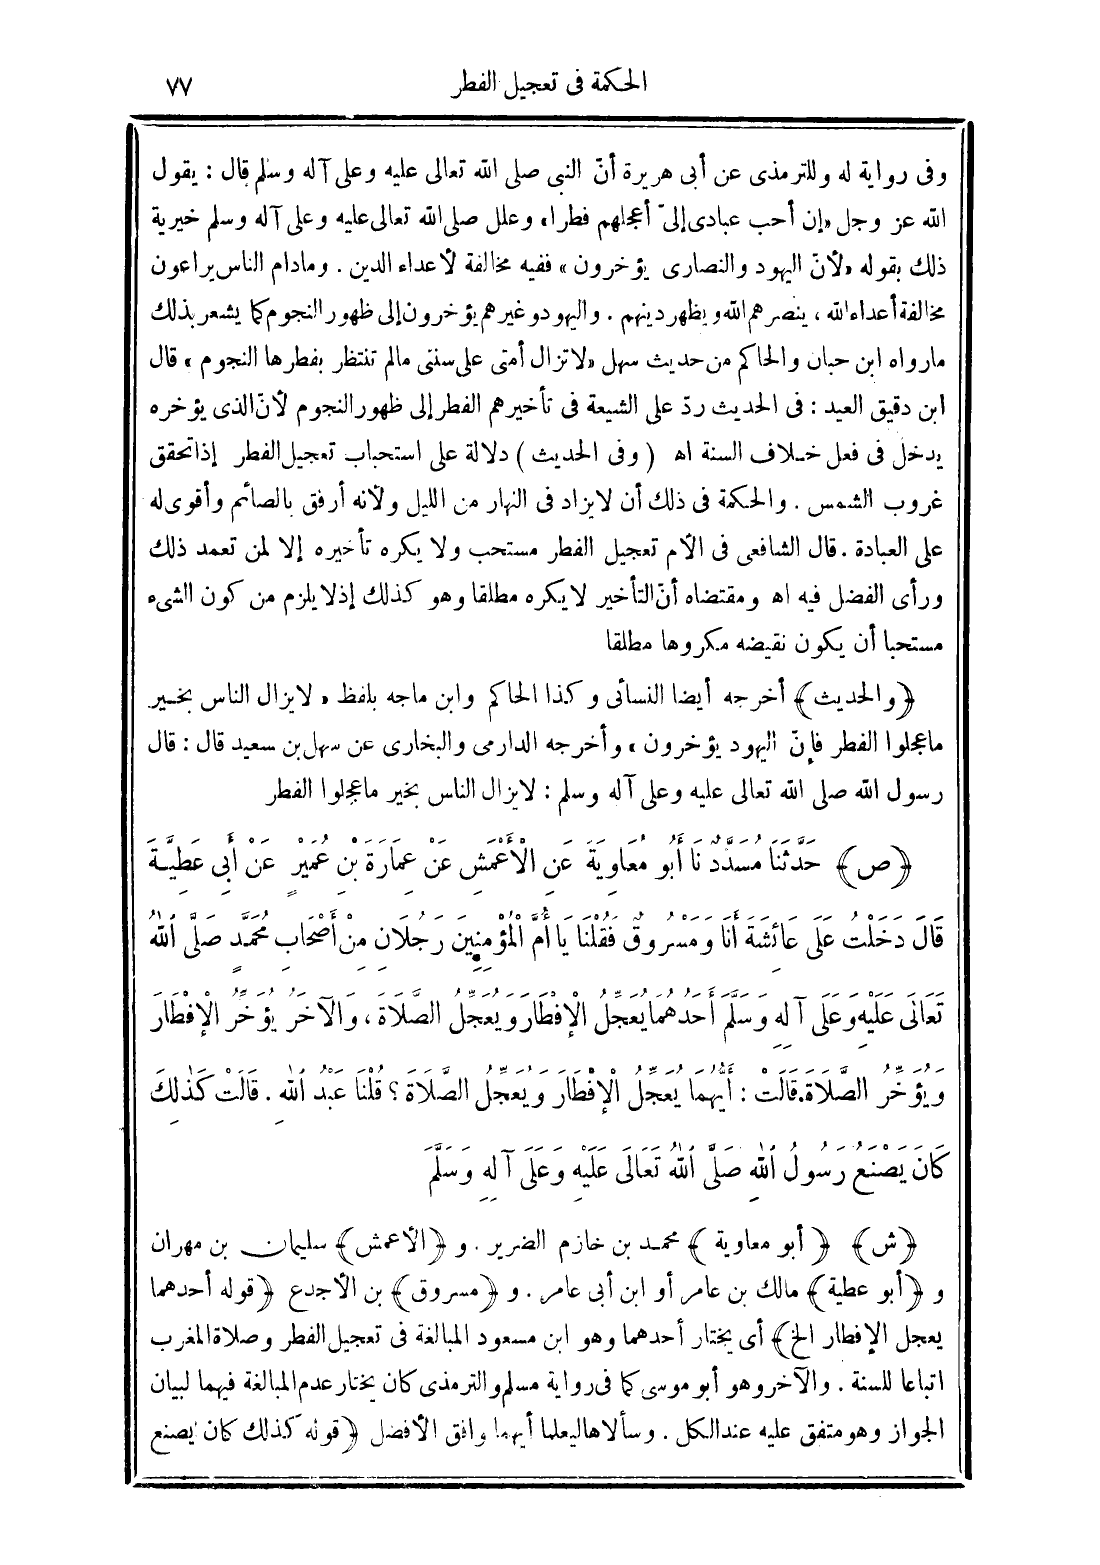 الحكمة فى تعجيل الفطر ٧٧
وفى رواية له وللترمذى عن أبى هريرة أنّ النبى صلى الله تعالى عليه وعلى آله وسلم قال : يقول
الله عز وجل «إن أحب عبادى إلىّ أعجلهم فطرا» وعلل صلى الله تعالى عليه وعلى آله وسلم خيرية
ذلك بقوله «لأنّ اليهود والنصارى يؤخرون» ففيه مخالفة لأعداء الدين . ومادام الناس يراعون
مخالفة أعداء الله ، ينصرهم الله ويظهر دينهم . واليهود وغيرهم يؤخرون إلى ظهور النجوم كما يشعر بذلك
مارواه ابن حبان والحاكم من حديث سهل «لاتزال أمتى على سنتى مالم تنتظر بفطرها النجوم» قال
ابن دقيق العيد : فى الحديث ردّ على الشيعة فى تأخيرهم الفطر إلى ظهور النجوم لأنّ الذى يؤخره
يدخل فى فعل خلاف السنة اه (وفى الحديث) دلالة على استحباب تعجيل الفطر إذا تحقق
غروب الشمس . والحكمة فى ذلك أن لايزاد فى النهار من الليل ولأنه أرفق بالصائم وأقوى له
على العبادة . قال الشافعى فى الأم تعجيل الفطر مستحب ولا يكره تأخيره إلا لمن تعمد ذلك
ورأى الفضل فيه اه ومقتضاه أنّ التأخير لايكره مطلقا وهو كذلك إذ لايلزم من كون الشىء
مستحبا أن يكون نقيضه مكروها مطلقا
﴿والحديث﴾ أخرجه أيضا النسائى وكذا الحاكم وابن ماجه بلفظ «لايزال الناس بخير
ماعجلوا الفطر فإنّ اليهود يؤخرون» وأخرجه الدارمى والبخارى عن سهل بن سعيد قال : قال
رسول الله صلى الله تعالى عليه وعلى آله وسلم : لايزال الناس بخير ماعجلوا الفطر
﴿ص﴾ حَدَّثَنَا مُسَدَّدٌ نَا أَبُو مُعَاوِيَةَ عَنِ الْأَعْمَشِ عَنْ عِمَارَةَ بْنِ عُمَيْرٍ عَنْ أَبِى عَطِيَّةَ
قَالَ دَخَلْتُ عَلَى عَائِشَةَ أَنَا وَمَسْرُوقٌ فَقُلْنَا يَا أُمَّ الْمُؤْمِنِينَ رَجُلَانِ مِنْ أَصْحَابِ مُحَمَّدٍ صَلَّى اللهُ
تَعَالَى عَلَيْهِ وَعَلَى آلِهِ وَسَلَّمَ أَحَدُهُمَا يُعَجِّلُ الْإِفْطَارَ وَيُعَجِّلُ الصَّلَاةَ ، وَالْآخَرُ يُؤَخِّرُ الْإِفْطَارَ
وَيُؤَخِّرُ الصَّلَاةَ. قَالَتْ : أَيُّهُمَا يُعَجِّلُ الْإِفْطَارَ وَيُعَجِّلُ الصَّلَاةَ ؟ قُلْنَا عَبْدُ اللهِ . قَالَتْ كَذٰلِكَ
كَانَ يَصْنَعُ رَسُولُ اللهِ صَلَّى اللهُ تَعَالَى عَلَيْهِ وَعَلَى آلِهِ وَسَلَّمَ
﴿ش﴾ ﴿أبو معاوية﴾ محمد بن خازم الضرير . و ﴿الأعمش﴾ سليمان بن مهران
و ﴿أبو عطية﴾ مالك بن عامر أو ابن أبى عامر . و ﴿مسروق﴾ بن الأجدع ﴿قوله أحدهما
يعجل الإفطار الخ﴾ أى يختار أحدهما وهو ابن مسعود المبالغة فى تعجيل الفطر وصلاة المغرب
اتباعا للسنة . والآخر وهو أبو موسى كما فى رواية مسلم والترمذى كان يختار عدم المبالغة فيهما لبيان
الجواز وهو متفق عليه عند الكل . وسألاها ليعلما أيهما وافق الأفضل ﴿قوله كذلك كان يصنع